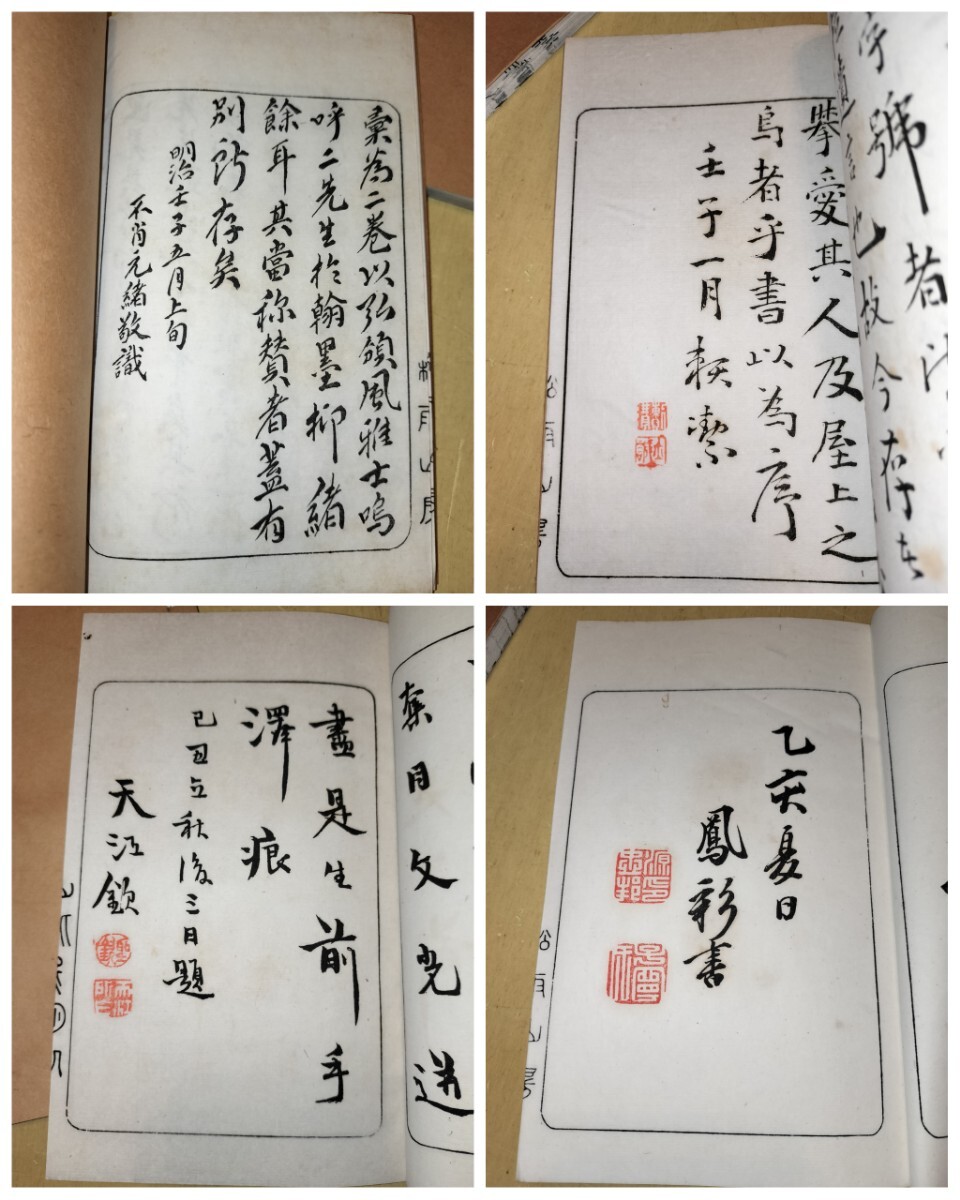 彙為二卷以弘領風雅士嗚
呼二先生於翰墨抑緒
餘耳其當称賛者蓋有
別所存矣
明治壬子五月上旬
不肖元緒敬識
字號者
也故今存在
挙愛其人及屋上之
烏者乎書以為序
壬子一月
奪目文光
盡是生前手
澤痕
己丑立秋後三日題
天江欽
乙亥夏日
鳳彩書